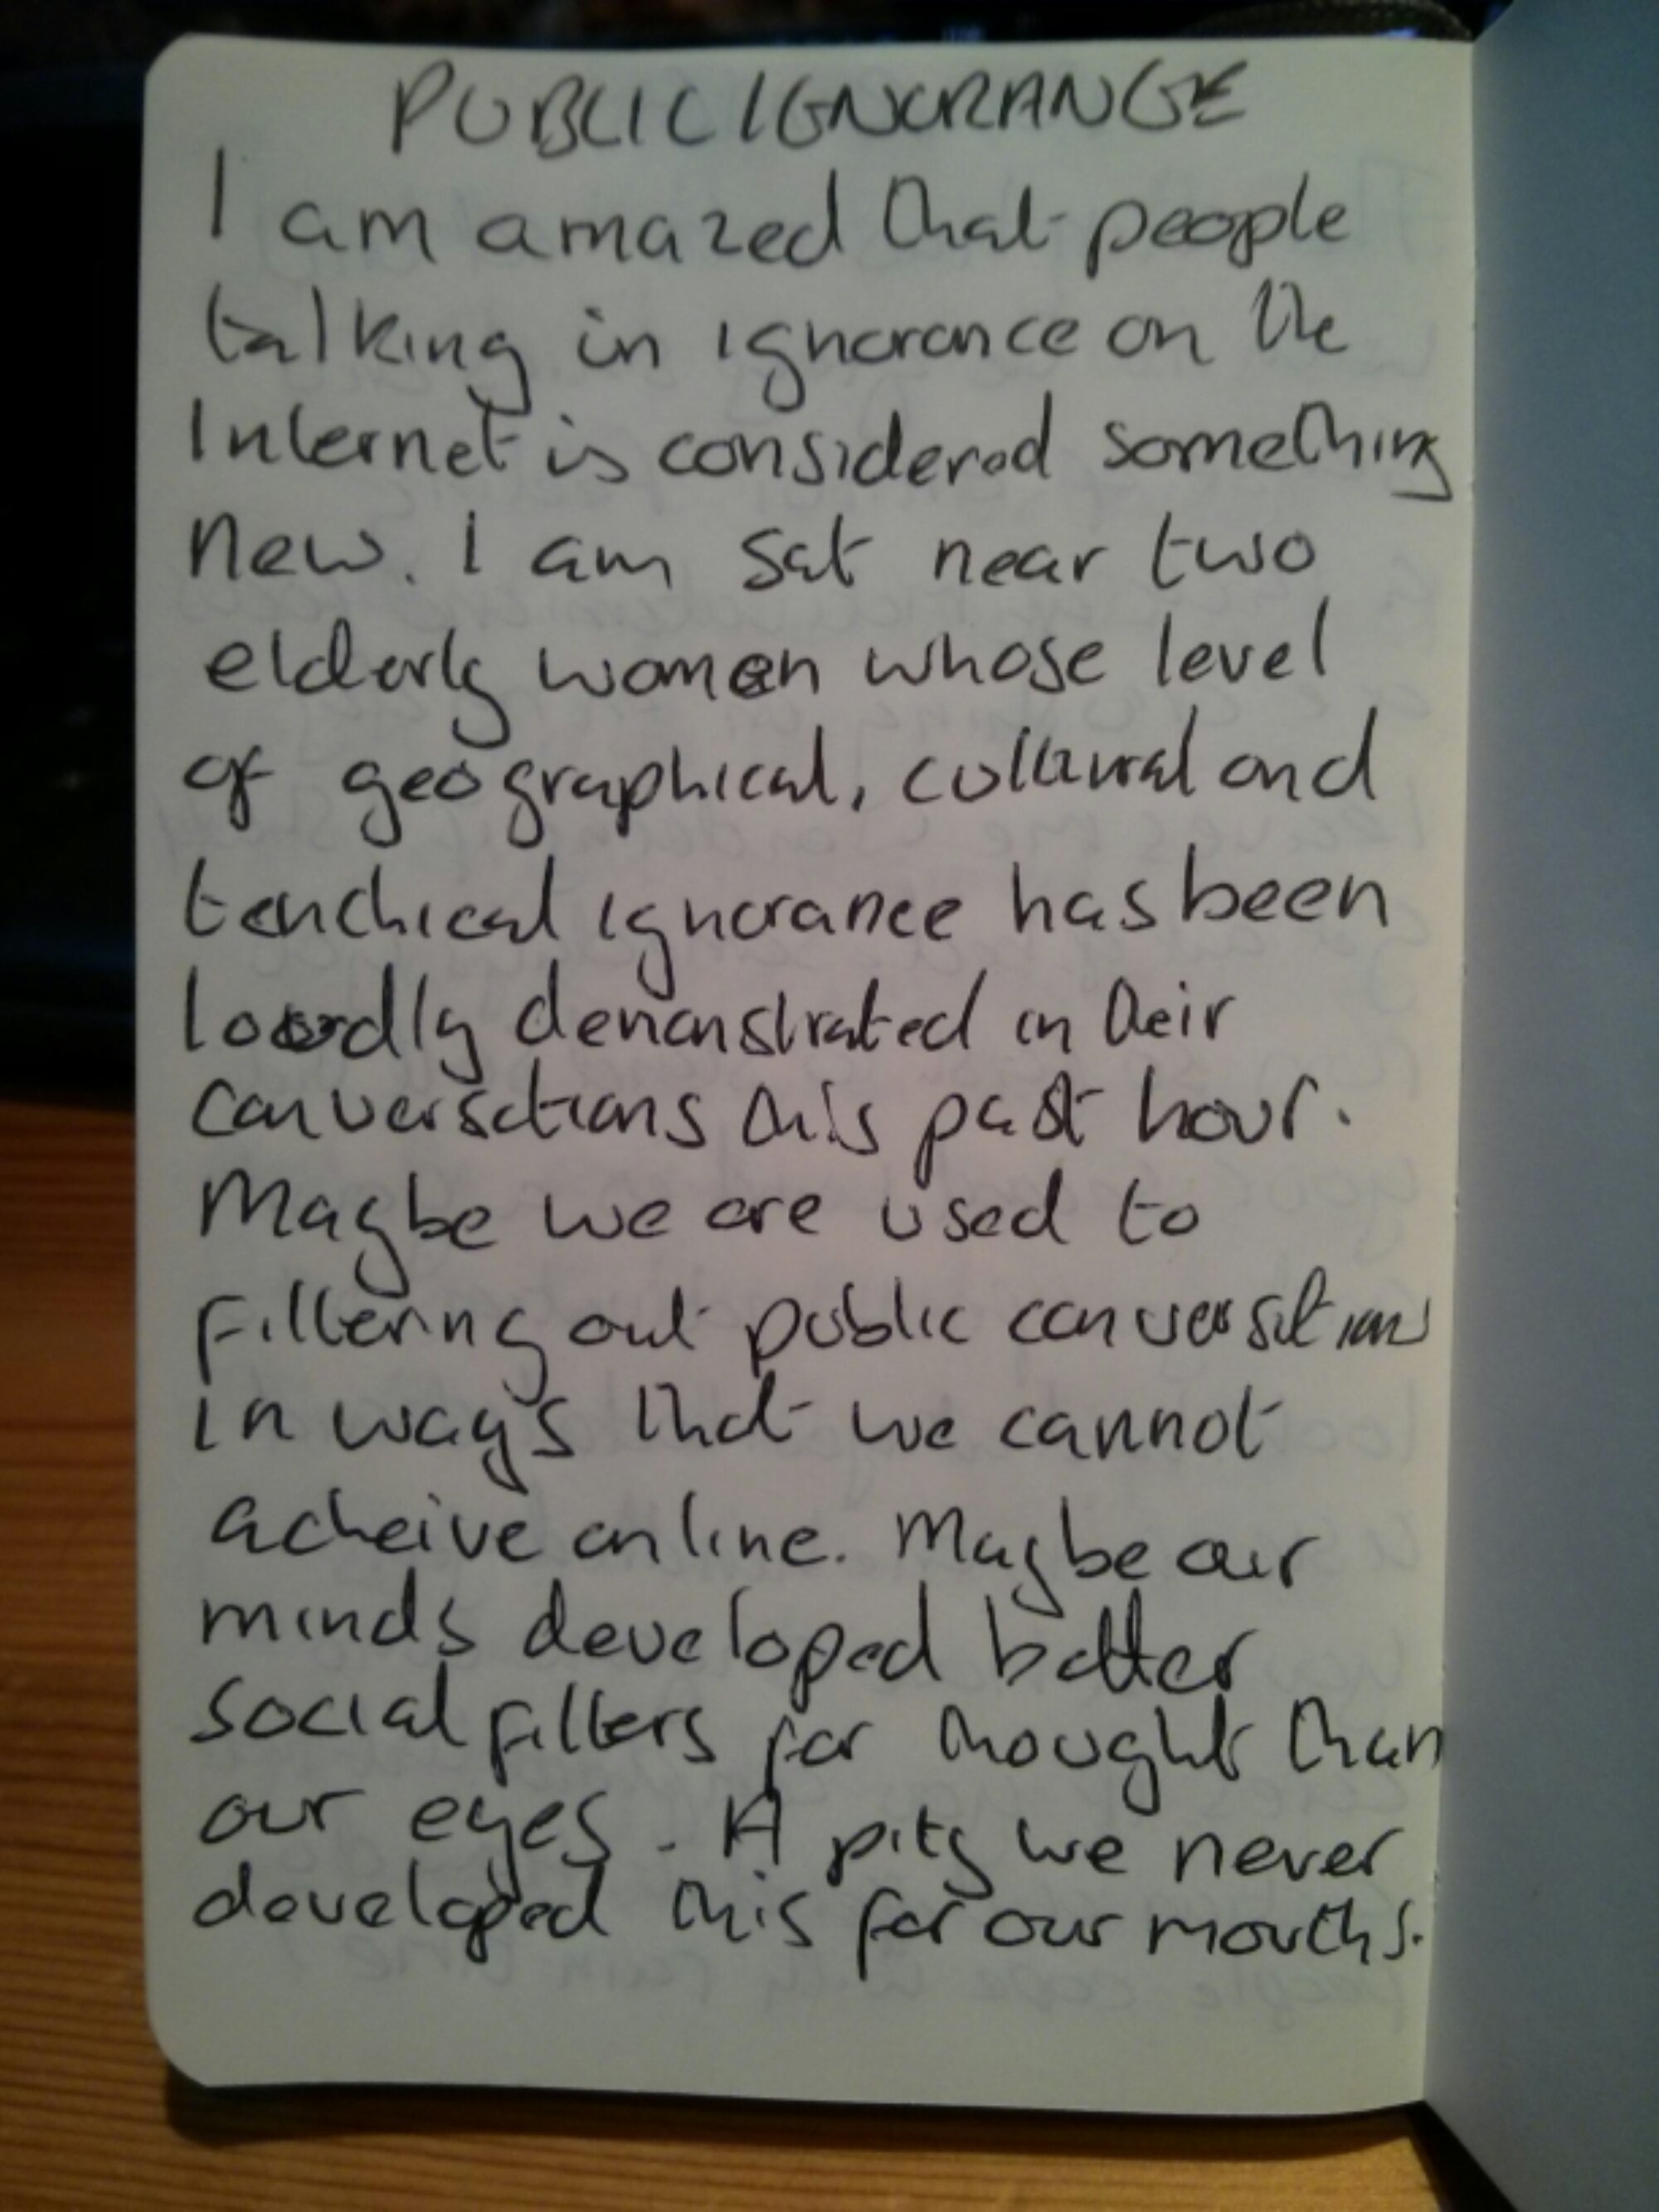 PUBLIC IGNORANCE
I am amazed that people
talking in ignorance on the
Internet is considered something
new. I am sat near two
elderly women whose level
of geographical, cultural and
tenchical ignorance has been
loudly demonstrated in their
conversations this past hour.
Maybe we are used to
filtering out public conversations
in ways that we cannot
acheive online. Maybe our
minds developed better
social filters for thought than
our eyes. A pity we never
developed this for our mouths.